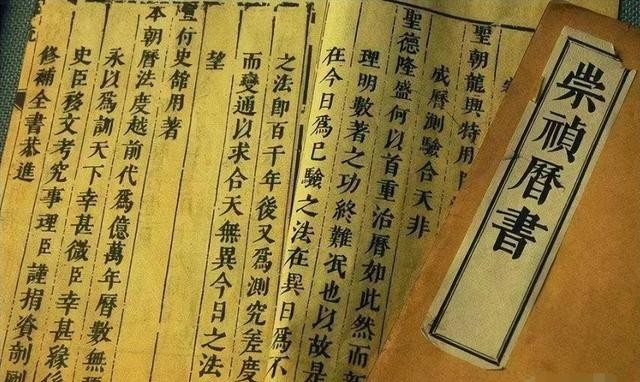 崇禎曆書
聖朝龍興特用
成曆測驗合天非
聖德隆盛何以首重治曆如此然而新
理明數著之功終難泯也以故是
在今日爲已驗之法在異日爲不
之法即百千年後又爲測究差度
而變通以求合天無異今日之法
望
宣付史館用著
本朝曆法度越前代爲億萬年曆數無
永以爲訓天下幸甚微臣幸甚緣係
史臣移文考究事理臣謹捐資剞劂
修補全書恭進